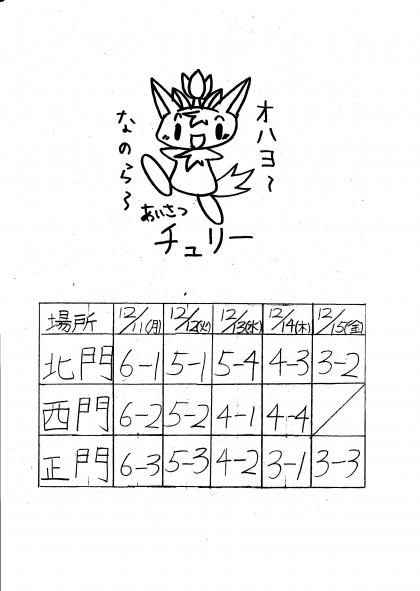 オハヨ〜
なのら〜
あいさつ
チュリー
場所 12/11(月) 12/12(火) 12/13(水) 12/14(木) 12/15(金)
北門 6-1 5-1 5-4 4-3 3-2
西門 6-2 5-2 4-1 4-4
正門 6-3 5-3 4-2 3-1 3-3